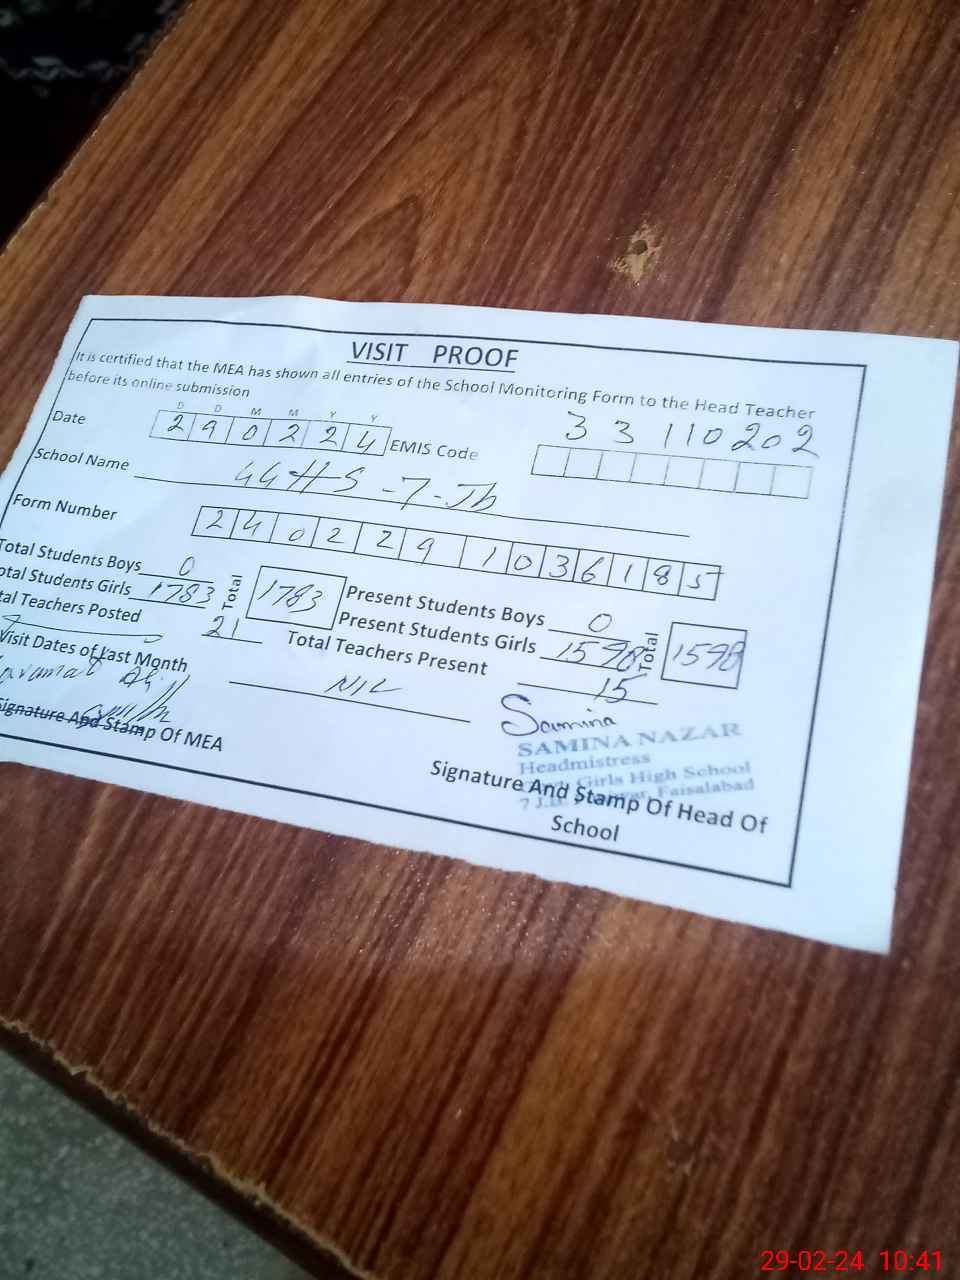 VISIT PROOF
It is certified that the MEA has shown all entries of the School Monitoring Form to the Head Teacher
before its online submission
D D M M Y Y
Date 2 9 0 2 2 4 EMIS Code 33110202
School Name GGHS-7-Jb
Form Number 2 4 0 2 2 9 1 0 3 6 1 8 5
Total Students Boys 0 Present Students Boys 0
otal Students Girls 1783 Total 1783 Present Students Girls 1598 Total 1598
tal Teachers Posted 21 Total Teachers Present 15
Visit Dates of Last Month NIL
Ali
Samina
Signature And Stamp Of MEA
SAMINA NAZAR
Headmistress
Girls High School
7 J.B. Faisalabad
Signature And Stamp Of Head Of
School
29-02-24 10:41